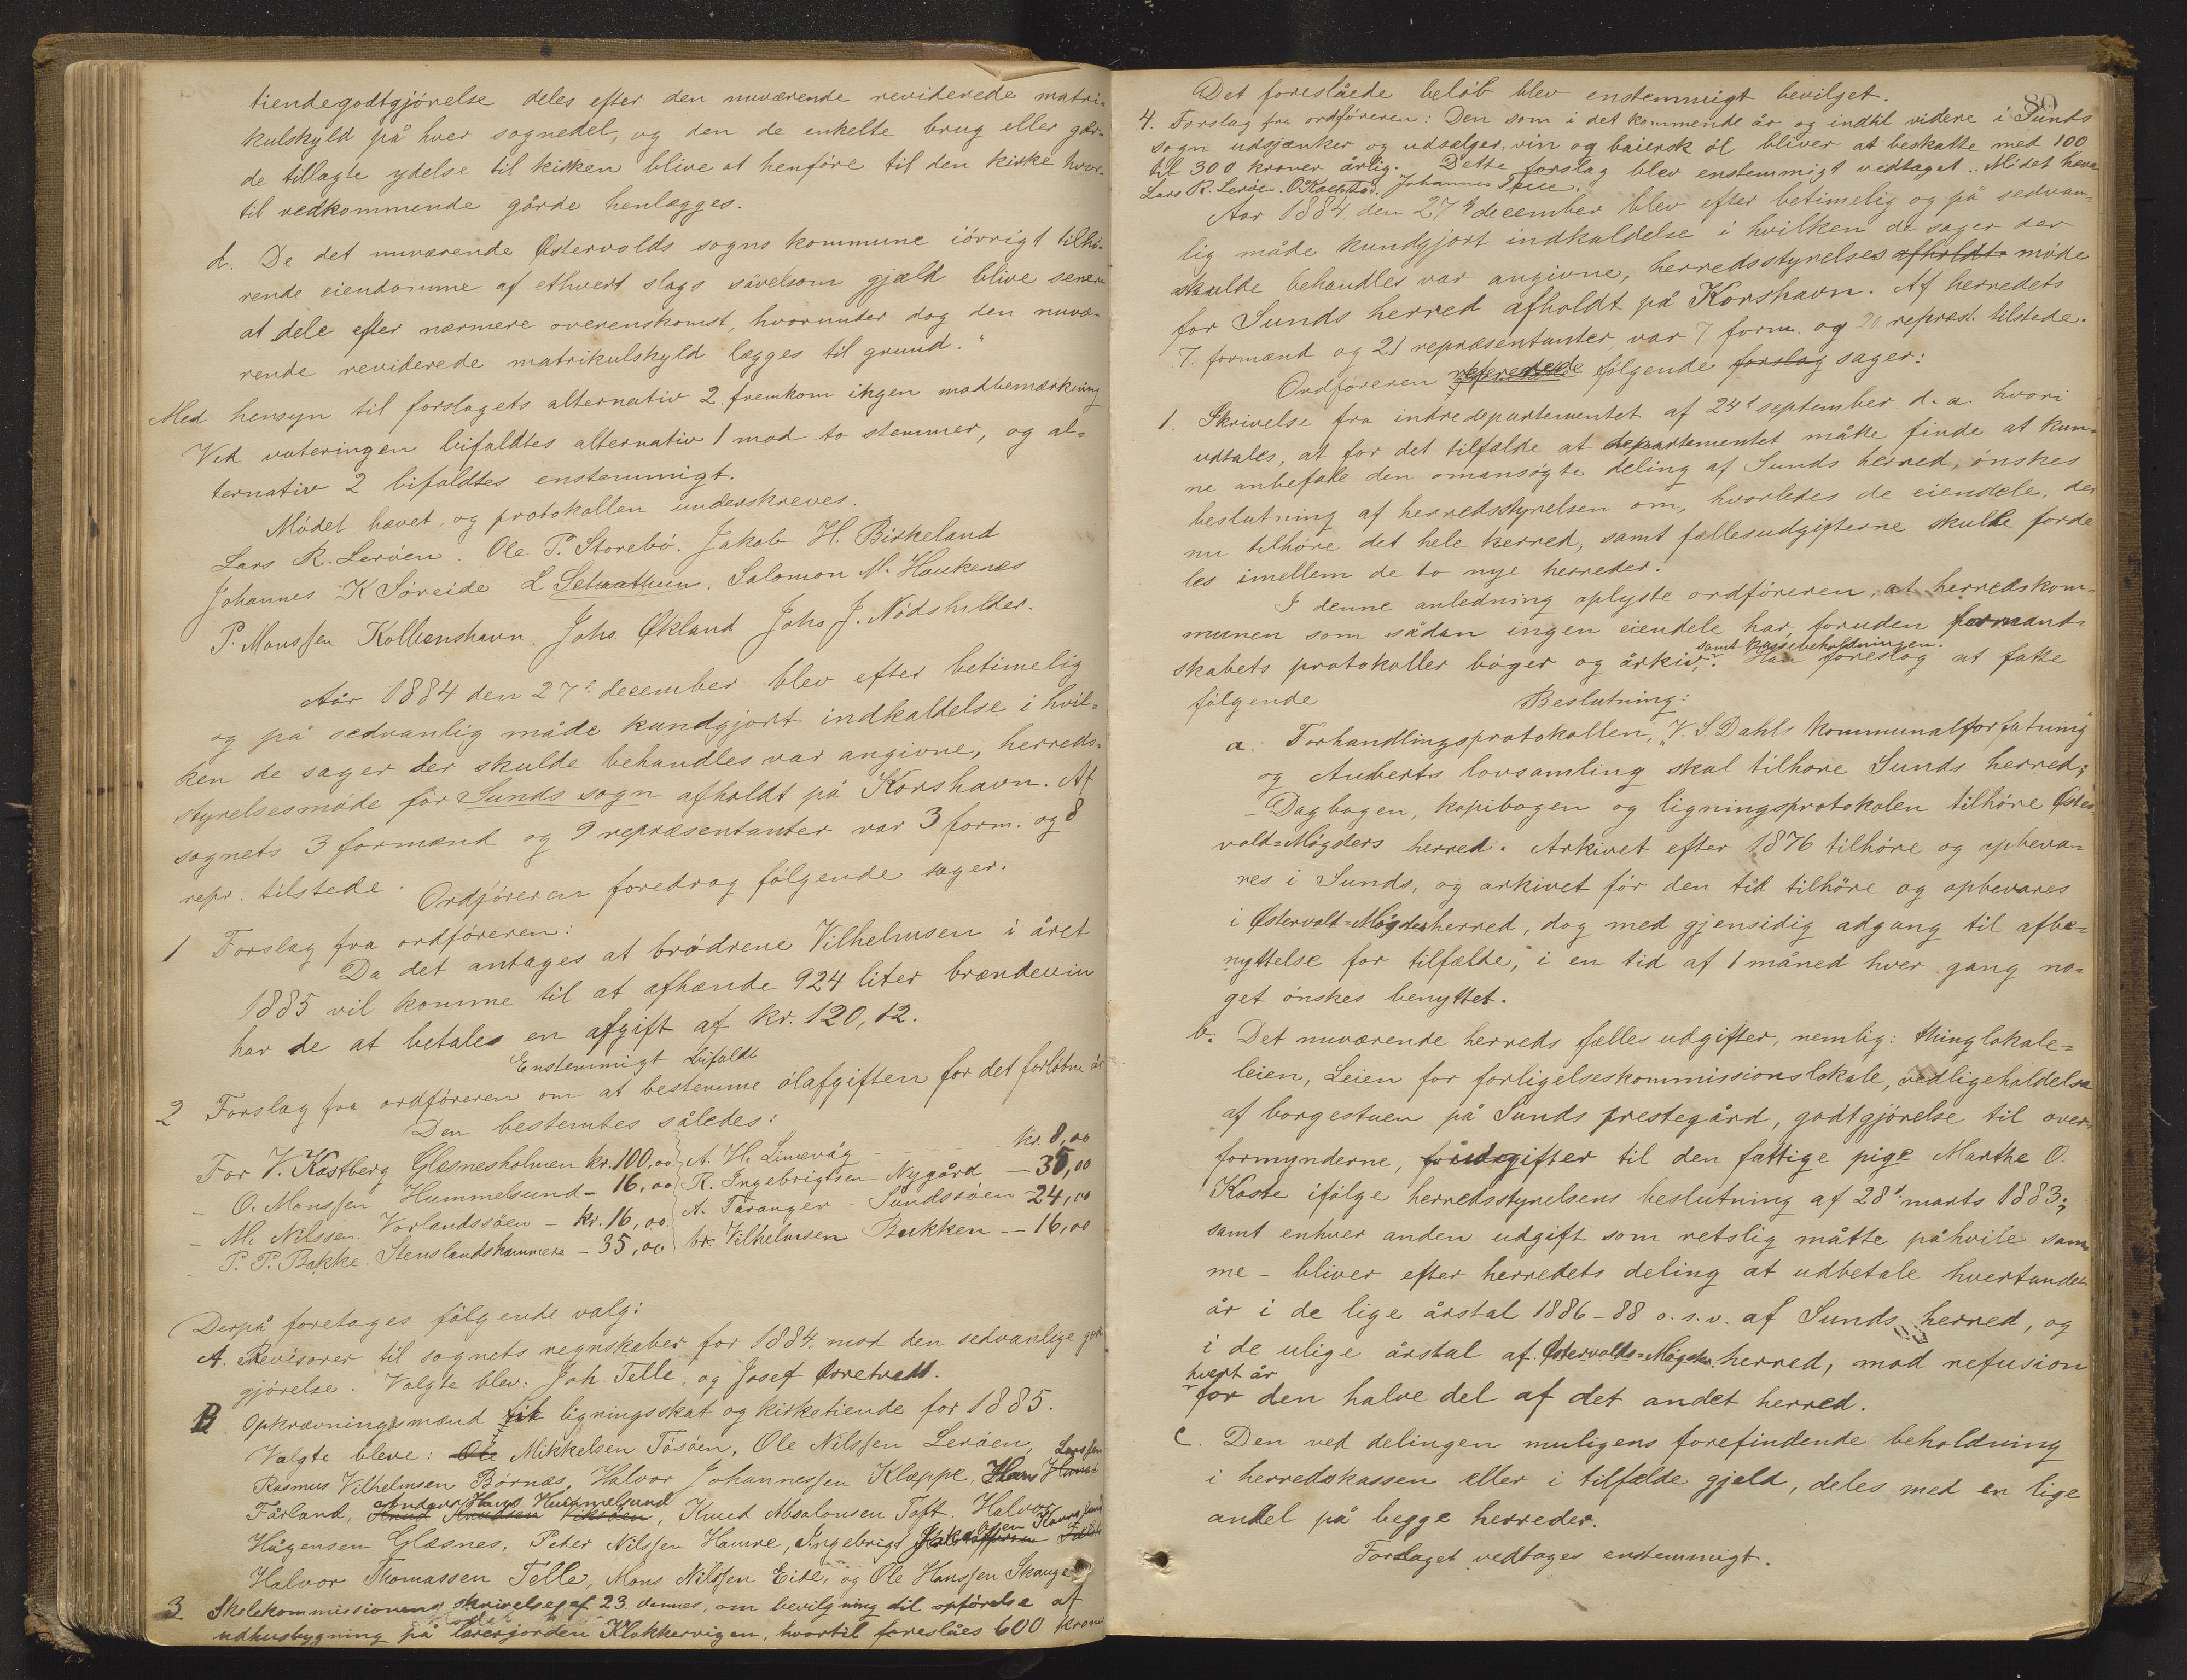 tiendegodtgjörelse deles efter den nuværende reviderede matri-
kulskyld på hver sognedel, og den de enkelte brug eller går-
de tillagte ydelse til kirken blive at henføre til den kirke hvor-
til vedkommende gårde henlægges.
d. De det nuværende Østervolds sogns kommune iövrigt tilhö-
rende eiendomme af ethvert slags såvelsom gjæld blive senere
at dele efter nærmere overenskomst, hvorunder dog den nuvæ-
rende reviderede matrikulskyld lægges til grund."
Med hensyn til forslagets alternativ 2 fremkom ingen modbemærkning
Ved voteringen bifaldtes alternativ 1 mod to stemmer, og al-
ternativ 2 bifaldtes enstemmigt.
Mödet hævet, og protokollen underskreves.
Lars R. Leröen. Ole P. Storebö. Jakob H. Birkeland
Johannes K Söreide L Selvaathun. Salomon N. Haukenes
P. Monssen Kolbenshavn. Johs Økland Johs J. Nödshilder.
Aår 1884 den 27de december blev efter betimelig
og på sedvanlig måde kundgjort indkaldelse i hvil-
ken de sager der skulde behandles var angivne, herreds-
styrelsesmöde för Sunds sogn afholdt på Korshavn. Af
sognets 3 formænd og 9 repræsentanter var 3 form. og 8
repr. tilstede. Ordföreren foredrog fölgende sager.
1 Forslag fra ordföreren:
Da det antages at brödrene Vilhelmsen i året
1885 vil komme til at afhænde 924 liter brændevin
har de at betales en afgift af kr. 120,12.
Enstemmigt bifaldt
2 Forslag fra ordföreren om at bestemme ölafgiften for det forløbne år
Den bestemtes således:
For V. Kastberg Glæsnesholmen kr. 100,00 A. H. Limevåg kr. 8,00
- O. Monssen Hummelsund - 16,00 R. Ingebrigtsen Nygård - 35,00
- M. Nilssen Vorlandssöen - kr. 16,00 A. Taranger - Sundssöen 24,00
- P. P. Bakke. Stenslandshammeren - 35,00 br. Vilhelmsen Bækken - 16,00
Derpå foretages fölgende valg:
A. Revisorer til sognets regnskaber for 1884 mod den sedvanlige godt
gjörelse. Valgte blev: Joh. Telle, og Josef Toretveit.
B Opkrævningsmænd til ligningsskat og kirketiende for 1885.
Valgte bleve: Ole Mikkelsen Tösöen, Ole Nilssen Leröen, Larssen
Rasmus Vilhelmsen Börnæs, Halvor Johannessen Klæppe, Hans
Anders Hans Hummelsund
Fårland, Knud Knudsen Viksöen, Knud Absalonsen Toft. Halvor
Hågensen Glæsnes, Peter Nilssen Hamre, Ingebrigt
Halvor Thomassen Telle, Mons Nilssen Eide, og Ole Hanssen Skauge
3. Skolekommissionens skrivelse af 23. dennes, om bevilgning til opförelse af
udhusbygning på lærerjorden Klokkervigen, hvortil foreslåes 600 kroner
80
Det foreslåede belöb blev enstemmigt bevilget.
4. Forslag fra ordföreren: Den som i det kommende år og indtil videre i Sunds
sogn udskjænker og udsælger, vin og baiersk öl bliver at beskatte med 100
til 300 kroner årlig. Dette forslag blev enstemmigt vedtaget. Mödet hævet
Lars R. Leröen. O. Kaestad. Johannes
Aar 1884, den 27de december blev efter betimelig og på sedvan-
lig måde kundgjort indkaldelse i hvilken de sager der
skulde behandles var angivne, herredsstyrelses afholdt möde
for Sunds herred afholdt på Korshavn. Af herredets
7. formænd og 21 repræsentanter var 7 form. og 20 repræst. tilstede.
Ordföreren refererede fölgende forslag sager:
1. Skrivelse fra indredepartementet af 24de september d. a. hvori
udtales, at for det tilfælde at departementet måtte finde at kun-
ne anbefale den omansögte deling af Sunds herred, önskes
beslutning af herredsstyrelsen om, hvorledes de eiendele, der
nu tilhöre det hele herred, samt fællesudgifterne skulle forde
les imellem de to nye herreder.
I denne anledning oplyste ordföreren, at herredskom-
munen som sådan ingen eiendele har foruden formand-
samt kassebeholdningen.
skabets protokoller böger og arkiv. Han foreslog at fatte
fölgende Beslutning:
a. Forhandlingsprotokollen, "V. S. Dahls kommunalforfatning"
og Auberts lovsamling skal tilhöre Sunds herred;
- Dagbogen, kopibogen og ligningsprotokolen tilhöre Öster-
vold=Mögsters herred. Arkivet efter 1876 tilhöre og opbeva-
res i Sunds, og arkivet för den tid tilhöre og opbevares
i Østervold=Mögsters herred, dog med gjensidig adgang til afbe-
nyttelse for tilfælde, i en tid af 1 måned hver gang no-
get önskes benyttet.
b. Det nuværende herreds fælles udgifter, nemlig: thinglokale-
leien, Leien for forligelseskommissionslokale, vedligeholdelse
af borgestuen på Sunds prestegård, godtgjörelse til over-
formynderne, udgifter til den fattige pige Marthe O.
Kaste ifölge herredsstyrelsens beslutning af 28de marts 1883;
samt enhver anden udgift som retslig måtte påhvile sam-
me - bliver efter herredets deling at udbetale hvertandet
år i de lige årstal 1886-88 o. s. v. af Sunds herred, og
i de ulige årstal af Østervolds=Mögsters herred, mod refusion
hvert år
for den halve del af det andet herred.
c. Den ved delingen muligens forefindende beholdning
i herredskassen eller i tilfælde gjæld, deles med en lige
andel på begge herreder.
Forslaget vedtages enstemmigt.